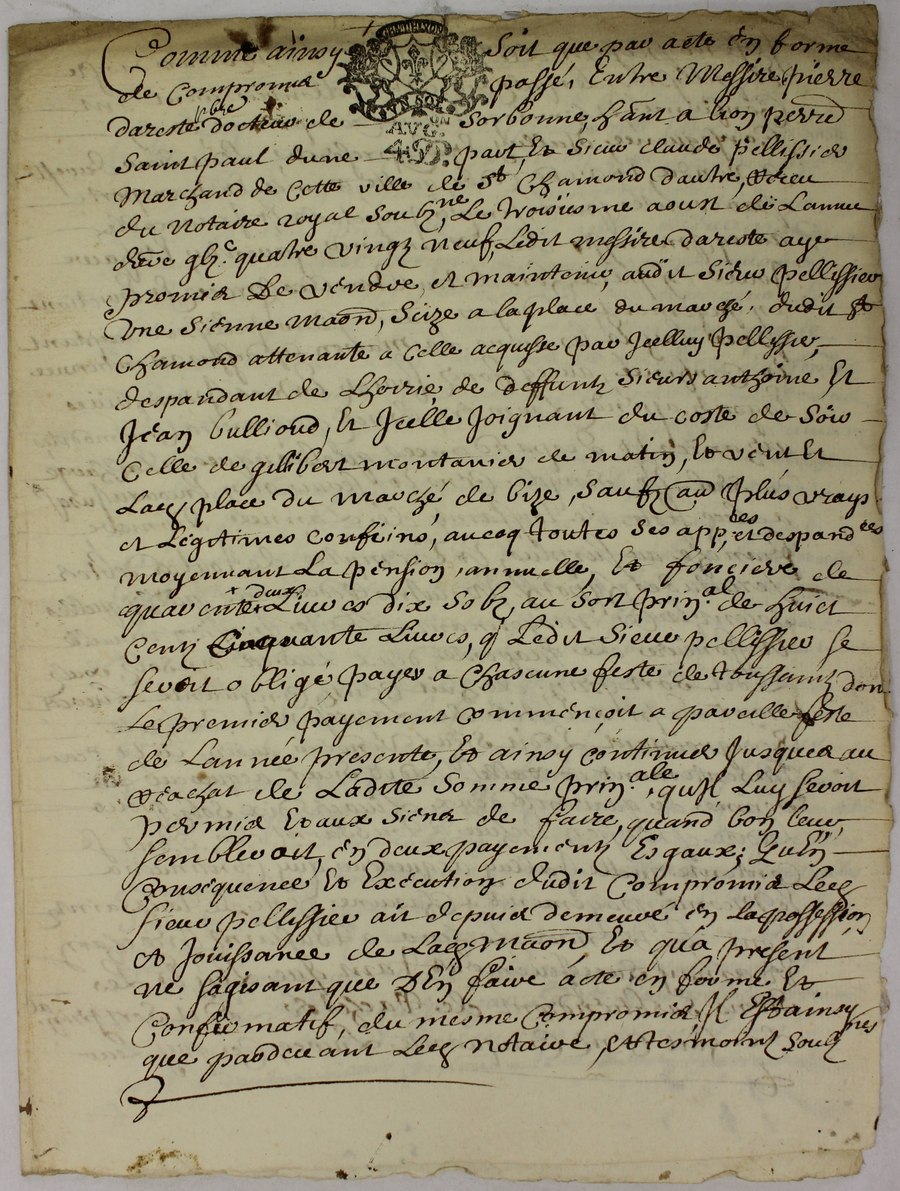 Comme ainsy soit que par acte en forme
de compromis passé, Entre Messire pierre
dareste pbre docteur de Sorbonne, hant a lion perre
Saint paul dune part, Et Sieur claude pellissier
Marchand de cette ville de St Chamond dautre, receu
du Notaire royal soubz.ne, Le troisiesme aoust de Lannee
quatre vingz neuf, Ledit messire dareste aye
promis De vendre, et maintenir, audit Sieur pellissier
Une Sienne maon, Scize a la place du marché, dudit St
Chamond attenante a celle acquisse par Jcelluy pellissier,
despandant de Lhoirie de deffuntz Sieurs anthoine Et
Jean bulliond, Et Jcelle Joignant du coste de Soir
Celle de gilibert montanier de matin, Et vent Et
Lad place du marché, de bize, Sauf au plus vrays
et Legitimes confeins, avecq toutes ses app.ces, et despand.ces
moyennant La pension, annuelle, Et fonciere de
quarente deux Livres dix Solz, au sort prin.al de huict
Centz Cinquante Livres, q Ledit Sieur pellissier se
seroit obligé payer a Chascune feste de toussaintz don
Le premier payement commençoit a pareille feste
de Lannée presente, Et ainsy continuer Jusques au
reachat de Ladite Somme prin.ale, qu'Jl Luy seroit
permis Et aux Siens de faire, quand bon leur
sembleroit, en deux payementz Esgaux; Qu'En
Consequence Et Execution dudit Compromis Led
Sieur pellissier ait depuis demeuré en la possession
et Jouissance de Lad maon, Et qu'a present
ne sagissant que D'En faire acte en forme Et
Confirmatif, du mesme compromis Jl Est ainsy
que pardevant Led notaire, et tesmoins soubz.nes